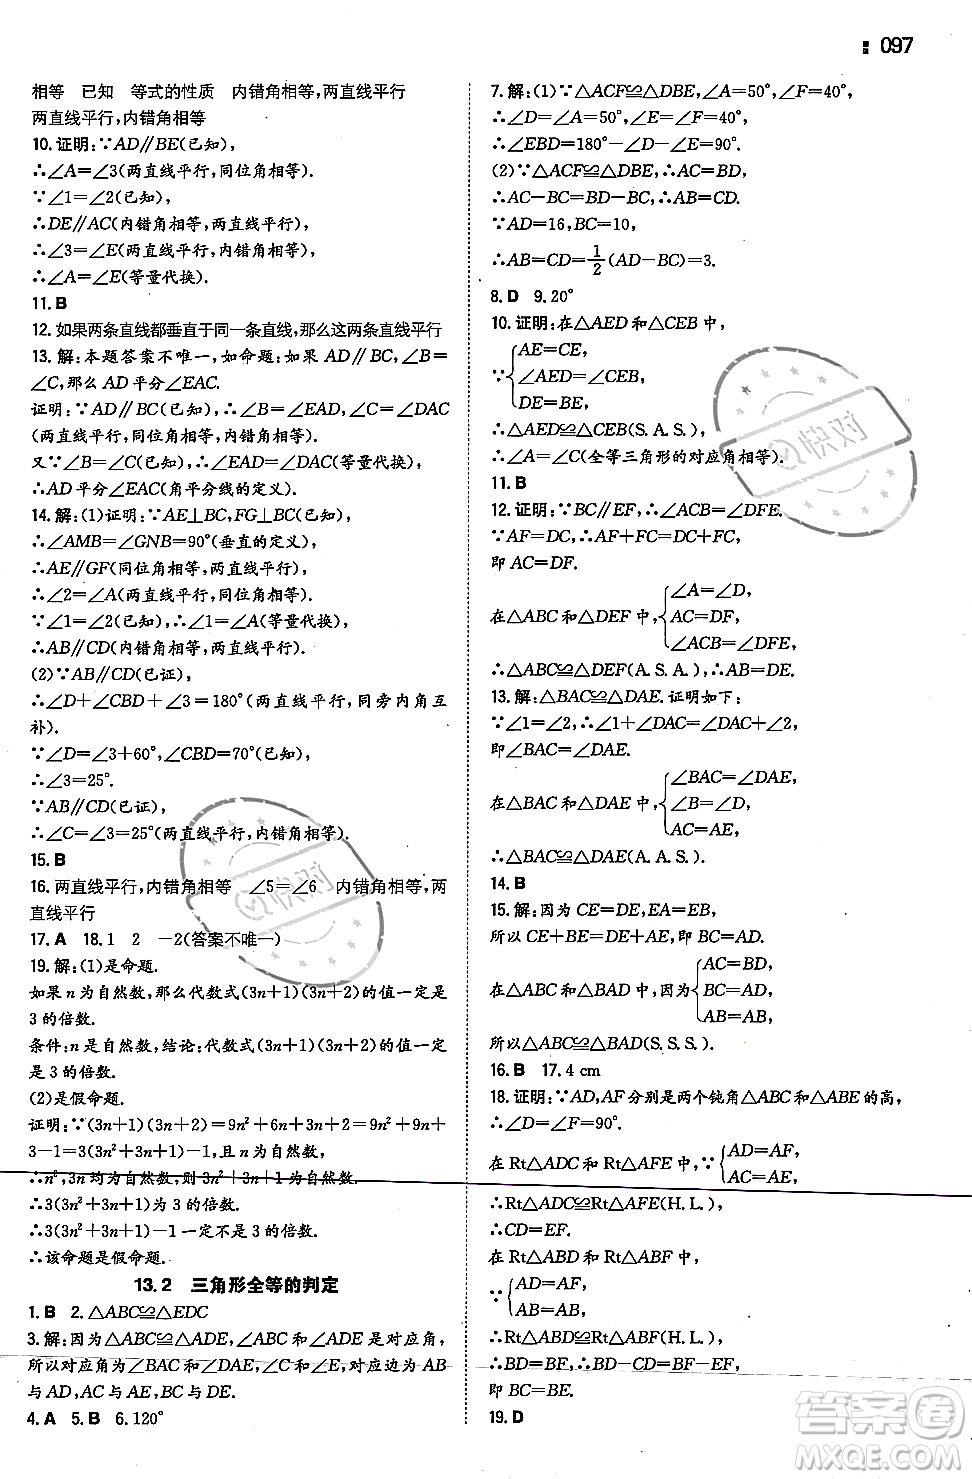 097
相等　已知　等式的性质　内错角相等,两直线平行
两直线平行,内错角相等
10.证明:∵AD∥BE(已知),
∴∠A=∠3(两直线平行,同位角相等).
∵∠1=∠2(已知),
∴DE∥AC(内错角相等,两直线平行),
∴∠3=∠E(两直线平行,内错角相等),
∴∠A=∠E(等量代换).
11.B
12.如果两条直线都垂直于同一条直线,那么这两条直线平行
13.解:本题答案不唯一,如命题:如果 AD∥BC,∠B=
∠C,那么 AD 平分∠EAC.
证明:∵AD∥BC(已知),∴∠B=∠EAD,∠C=∠DAC
(两直线平行,同位角相等,内错角相等).
又∵∠B=∠C(已知),∴∠EAD=∠DAC(等量代换),
∴AD平分∠EAC(角平分线的定义).
14.解:(1)证明:∵AE⊥BC,FG⊥BC(已知),
∴∠AMB=∠GNB=90°(垂直的定义),
∴AE∥GF(同位角相等,两直线平行),
∴∠2=∠A(两直线平行,同位角相等).
∵∠1=∠2(已知),∴∠1=∠A(等量代换),
∴AB∥CD(内错角相等,两直线平行).
(2)∵AB∥CD(已证),
∴∠D+∠CBD+∠3=180°(两直线平行,同旁内角互
补).
∵∠D=∠3+60°,∠CBD=70°(已知),
∴∠3=25°.
∵AB∥CD(已证),
∴∠C=∠3=25°(两直线平行,内错角相等).
15.B
16.两直线平行,内错角相等　∠5=∠6　内错角相等,两
直线平行
17.A　18.1　2　−2(答案不唯一)
19.解:(1)是命题.
如果 n 为自然数,那么代数式(3n+1)(3n+2)的值一定是
3 的倍数.
条件:n 是自然数,结论:代数式(3n+1)(3n+2)的值一定
是 3 的倍数.
(2)是假命题.
证明:∵(3n+1)(3n+2)=9n²+6n+3n+2=9n²+9n+
3−1=3(3n²+3n+1)−1,且 n 为自然数,
∴n²,3n均为自然数,则 3n²+3n+1 为自然数.
∴3(3n²+3n+1)为 3 的倍数.
∴3(3n²+3n+1)−1 一定不是 3 的倍数.
∴该命题是假命题.
13.2　三角形全等的判定
1.B　2.△ABC≌△EDC
3.解:因为△ABC≌△ADE,∠ABC 和∠ADE 是对应角,
所以对应角为∠BAC 和∠DAE,∠C 和∠E,对应边为 AB
与 AD,AC 与 AE,BC 与 DE.
4.A　5.B　6.120°
7.解:(1)∵△ACF≌△DBE,∠A=50°,∠F=40°,
∴∠D=∠A=50°,∠E=∠F=40°,
∴∠EBD=180°−∠D−∠E=90°.
(2)∵△ACF≌△DBE,∴AC=BD,
∴AC−BC=BD−BC,∴AB=CD.
∵AD=16,BC=10,
∴AB=CD=1/2(AD−BC)=3.
8.D　9.20°
10.证明:在△AED 和△CEB 中,
AE=CE,
∵{∠AED=∠CEB,
DE=BE,
∴△AED≌△CEB(S.A.S.),
∴∠A=∠C(全等三角形的对应角相等).
11.B
12.证明:∵BC∥EF,∴∠ACB=∠DFE.
∵AF=DC,∴AF+FC=DC+FC,
即 AC=DF.
∠A=∠D,
在△ABC 和△DEF 中,{AC=DF,
∠ACB=∠DFE,
∴△ABC≌△DEF(A.S.A.),∴AB=DE.
13.解:△BAC≌△DAE.证明如下:
∵∠1=∠2,∴∠1+∠DAC=∠DAC+∠2,
即∠BAC=∠DAE.
∠BAC=∠DAE,
在△BAC 和△DAE 中,{∠B=∠D,
AC=AE,
∴△BAC≌△DAE(A.A.S.).
14.B
15.解:因为 CE=DE,EA=EB,
所以 CE+BE=DE+AE,即 BC=AD.
AC=BD,
在△ABC 和△BAD 中,因为{BC=AD,
AB=AB=,
所以△ABC≌△BAD(S.S.S.).
16.B　17.4 cm
18.证明:∵AD,AF 分别是两个钝角△ABC 和△ABE 的高,
∴∠D=∠F=90°.
在 Rt△ADC 和 Rt△AFE 中,∵{AD=AF,
AC=AE,
∴Rt△ADC≌Rt△AFE(H.L.),
∴CD=EF.
在 Rt△ABD 和 Rt△ABF 中,
AD=AF,
∵{
AB=AB,
∴Rt△ABD≌Rt△ABF(H.L.),
∴BD=BF,∴BD−CD=BF−EF,
即 BC=BE.
19.D
快对
快对
答案圈
MXQE.COM